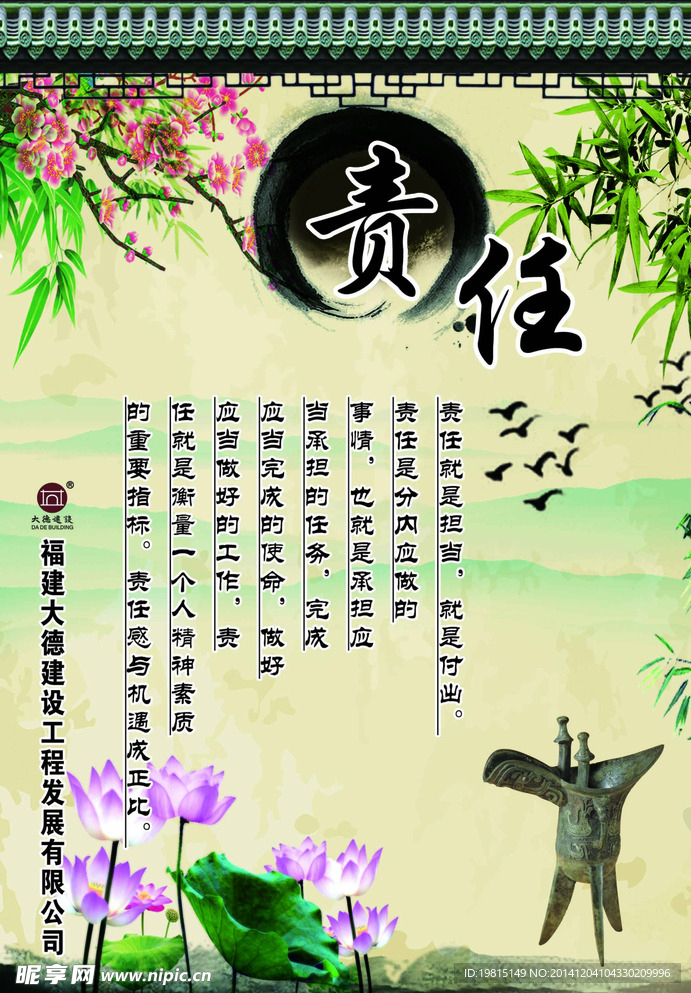 责任
责任就是担当，就是付出。
责任是分内应做的
事情，也就是承担应
当承担的任务，完成
应当完成的使命，做好
应当做好的工作，责
任就是衡量一个人精神素质
的重要指标。责任感与机遇成正比。
®
大德建设
DA DE BUILDING
福建大德建设工程发展有限公司
昵享网 www.nipic.cn
ID:19815149 NO:20141204104330209996